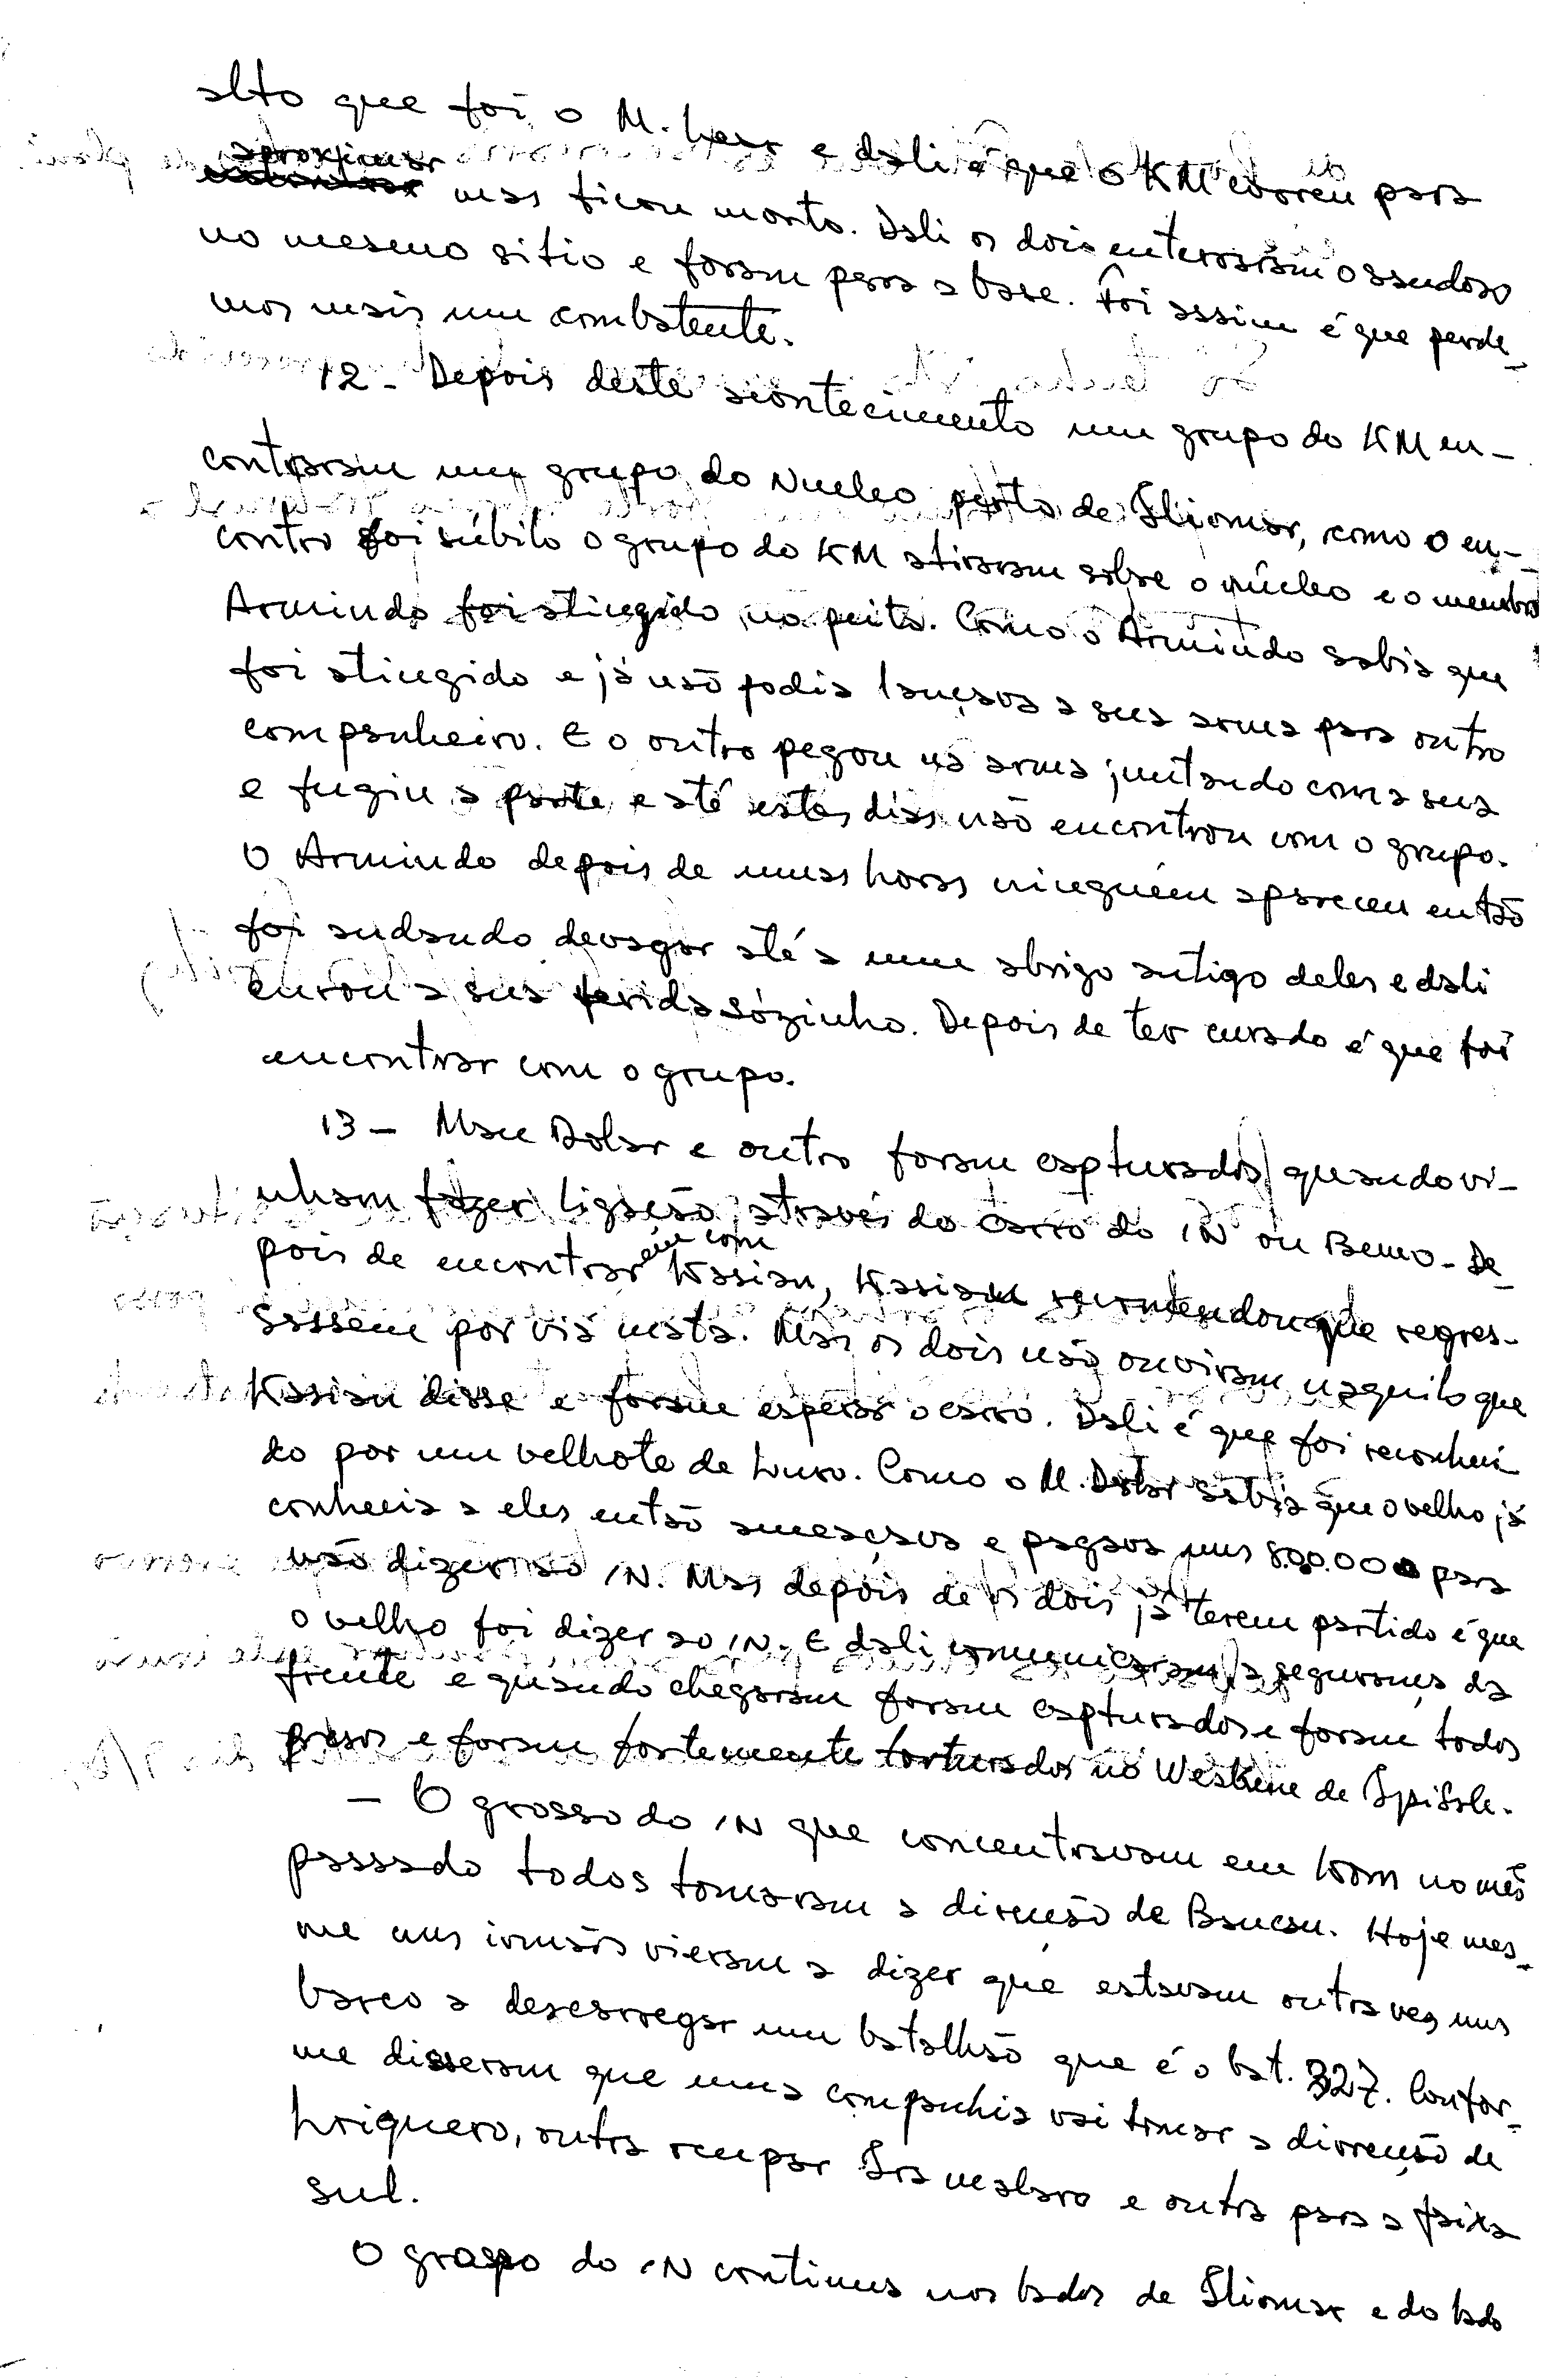 alto que foi o M. Lear e dali é que o KM correu para
aproximar mas ficou morto. Dali os dois enteraram o saudoso
no mesmo sitio e foram para a base. Foi assim é que perde-
mos mais um combatente.
12 - Depois deste acontecimento um grupo do KM en-
contraram um grupo do Nucleo perto de Iliomar, como o en-
contro foi súbito o grupo do KM atiraram sobre o núcleo e o membro
Armindo foi atingido no peito. Como o Armindo sabia que
foi atingido e já não podia lançava a sua arma para outro
companheiro. E o outro pegou na arma juntando com a sua
e fugiu a parte e até estes dias não encontrou com o grupo.
O Armindo depois de umas horas ninguém apareceu então
foi andando devagar até a um abrigo antigo deles e dali
curou a sua ferida sózinho. Depois de ter curado é que foi
encontrar com o grupo.
13 - Mau Dolar e outro foram capturados quando vi-
nham fazer ligação através do carro do IN ou Bemo. De-
pois de encontrarem com Kasian, Kasian recomendou que regres-
sassem por via mata. Mas os dois não ouviram naquilo que
Kasian disse e foram esperar o carro. Dali é que foi reconheci
do por um velhote de Luro. Como o M. Dolar sabia que o velho já
conhecia a eles então ameaçava e pagava uns 800.000 para
não dizer ao IN. Mas depois de os dois já terem partido é que
o velho foi dizer ao IN. E dali comunicaram a segurança da
frente e quando chegaram foram capturados e foram todos
presos e foram fortemente torturados no de
- O grosso do IN que concentravam em no mês
passado todos tomaram a direcção de Baucau. Hoje mes-
me uns irmãos vieram a dizer que estavam outra vez uns
barco a descarregar um batalhão que é o bat. 327. Confor-
me disseram que uma companhia vai tomar a direcção de
outra ocupar e outra para a faixa
sul.
O grosso do IN continua nos lados de Iliomar e do lado